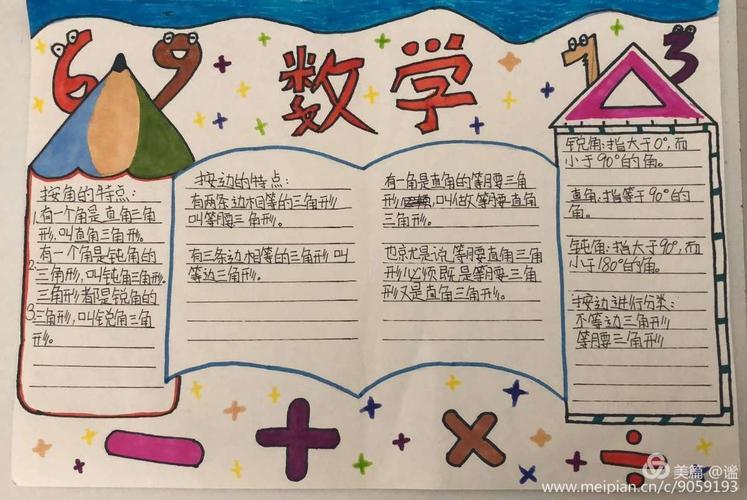 6 9
数学
7 3
按角的特点:
1.有一个角是直角三角
形,叫直角三角形。
2.有一个角是钝角的
三角形,叫钝角三角形。
3.三角形都是锐角的
三角形,叫锐角三角
形。
按边的特点:
有两条边相等的三角形
叫等腰三角形。
有三条边相等的三角形叫
等边三角形。
有一角是直角的等腰三角
形,叫做等腰直角
三角形。
也就是说,等腰直角三角
形必须既是等腰三角
形又是直角三角形。
锐角:指大于0°,而
小于90°的角。
直角:指等于90°的
角。
钝角:指大于90°,而
小于180°的角。
按边进行分类:
不等边三角形
等腰三角形
− + × ÷
美篇 @谧
www.meipian.cn/c/9059193